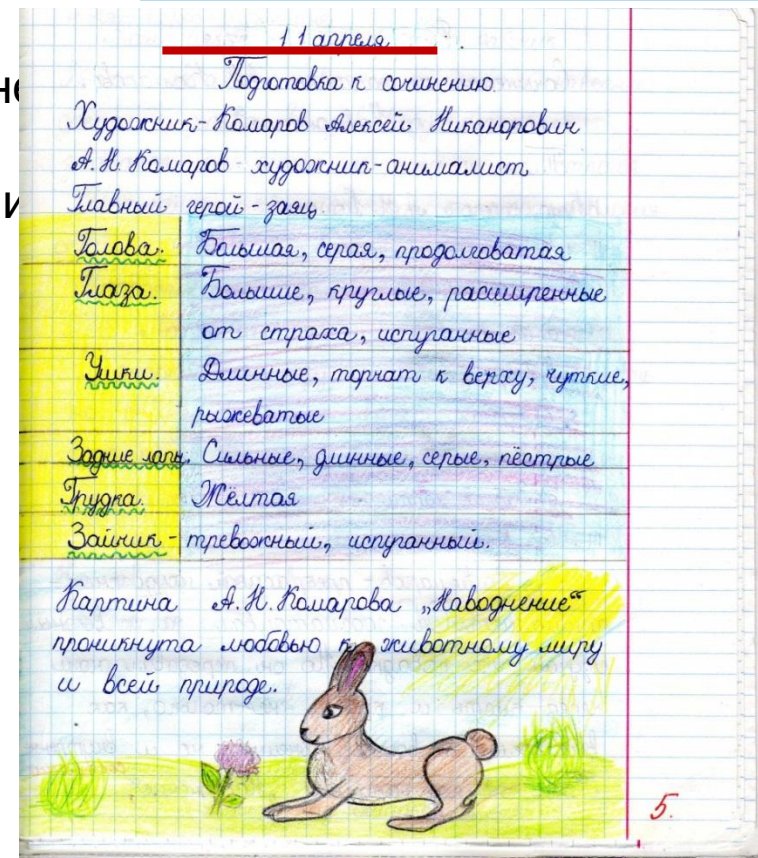 не
и
11 апреля
Подготовка к сочинению.
Художник - Комаров Алексей Никанорович
А.Н. Комаров - художник-анималист
Главный герой - заяц.
Голова. Большая, серая, продолговатая
Глаза. Большие, круглые, расширенные
от страха, испуганные
Ушки. Длинные, торчат к верху, чуткие,
рыжеватые
Задние лапы. Сильные, длинные, серые, пёстрые
Грудка. Жёлтая
Зайчик - тревожный, испуганный.
Картина А.Н. Комарова „Наводнение“
проникнута любовью к животному миру
и всей природе.
5.